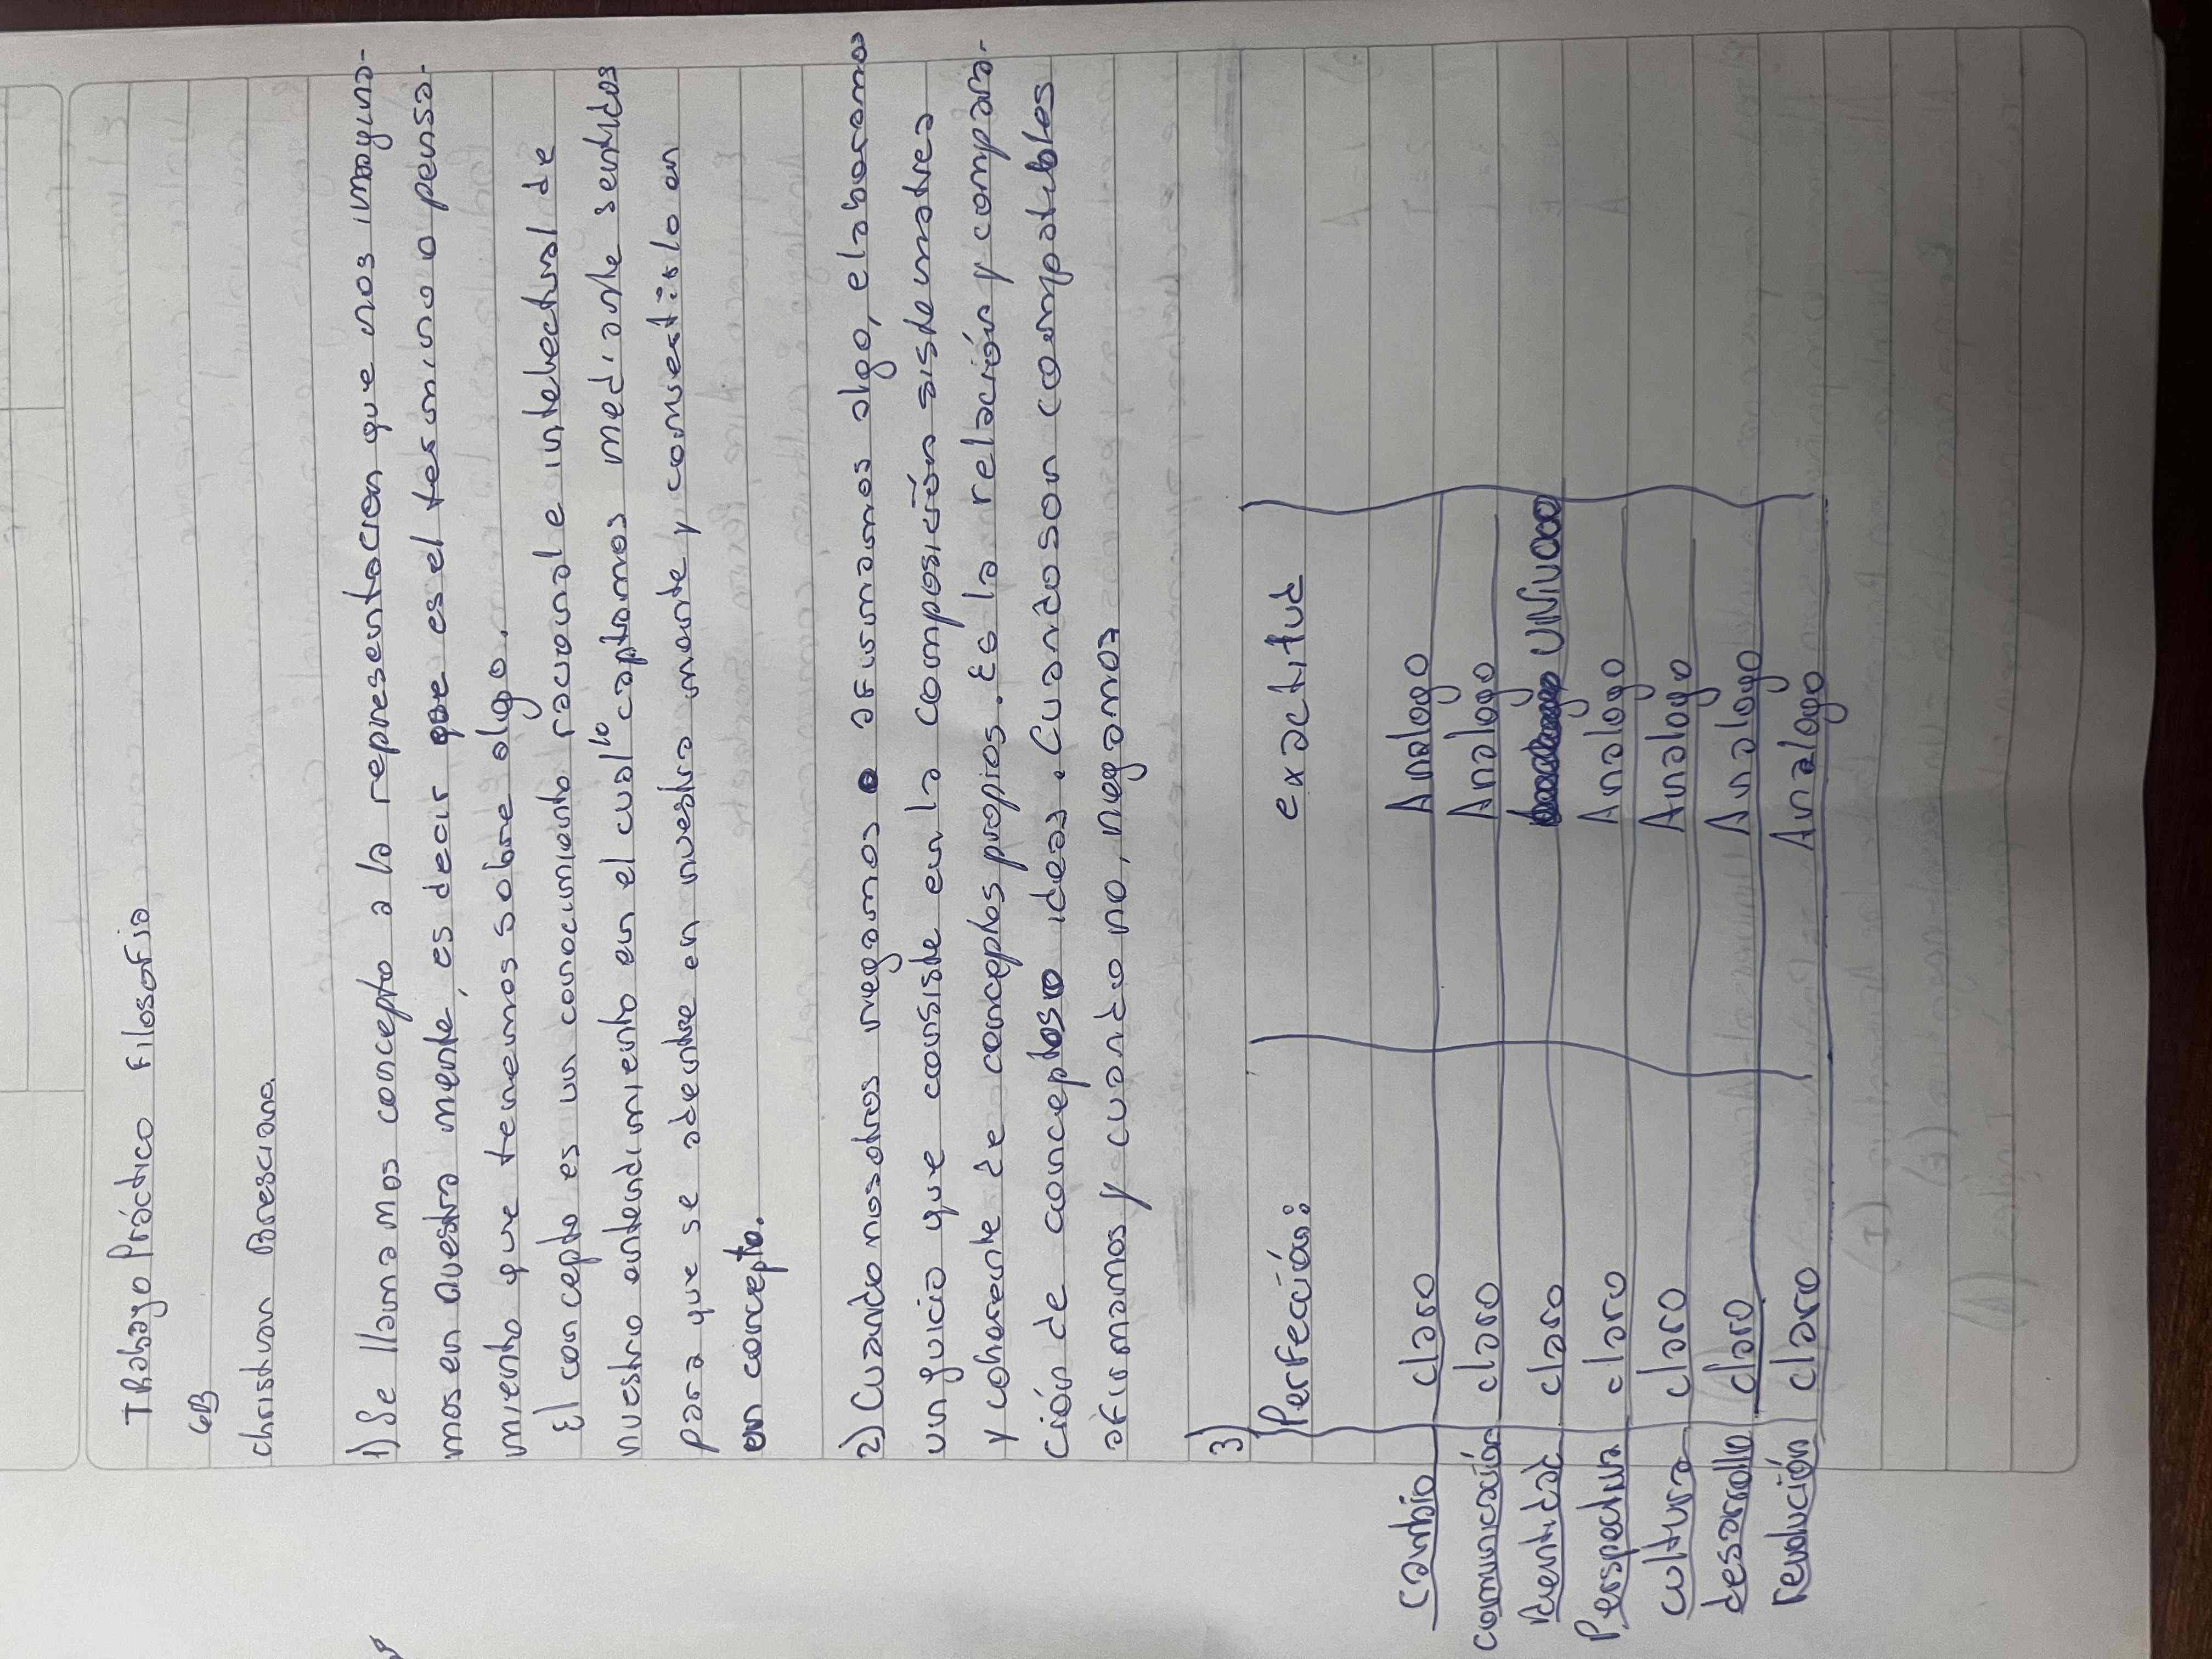 TRabajo Práctico Filosofia
6B
christian Bresciano.
1) Se llamamos concepto a la representacion que nos imagina-
mos en nuestra mente, es decir que es el termino o pensa-
miento que tenemos sobre algo.
El concepto es un conocimiento racional e intelectual de
nuestro entendimiento en el cual lo captamos mediante sentidos
para que se adentre en nuestra mente y convertirlo en
en concepto.
2) Cuando nosotros negamos o afirmamos algo, elaboramos
un juicio que consiste en la composición sistematica
y coherente de conceptos propios. Es la relación y compara-
ción de conceptos o ideas. Cuando son compatibles
afirmamos y cuando no, negamos
3)
Perfección: exactitud
Cambio claro Analogo
comunicación claro Analogo
identidad claro UNIVOCO
Perspectiva claro Analogo
cultura claro Analogo
desarrollo claro Analogo
revolución claro Analogo